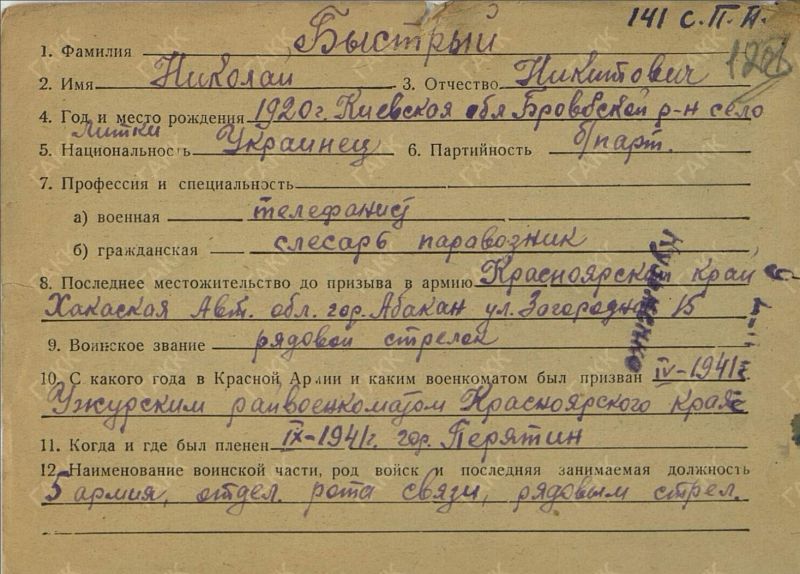 141 с.п.п.
1. Фамилия Быстрый
2. Имя Николай 3. Отчество Никитович
4. Год и место рождения 1920г. Киевская обл Бровобской р-н село
Литки
5. Национальность Украинец 6. Партийность б/парт.
7. Профессия и специальность
а) военная телефанист
б) гражданская слесарь паравозник
8. Последнее местожительство до призыва в армию Красноярский край
Хакаская Авт. обл. гор. Абакан ул. Загородная 15
9. Воинское звание рядовой стрелок
10. С какого года в Красной Армии и каким военкоматом был призван IV-1941г
Ужурским райвоенкоматом Красноярского края
11. Когда и где был пленен IX-1941г. гор. Перятин
12. Наименование воинской части, род войск и последняя занимаемая должность
5 армия, отдел. рота связи, рядовым стрел.